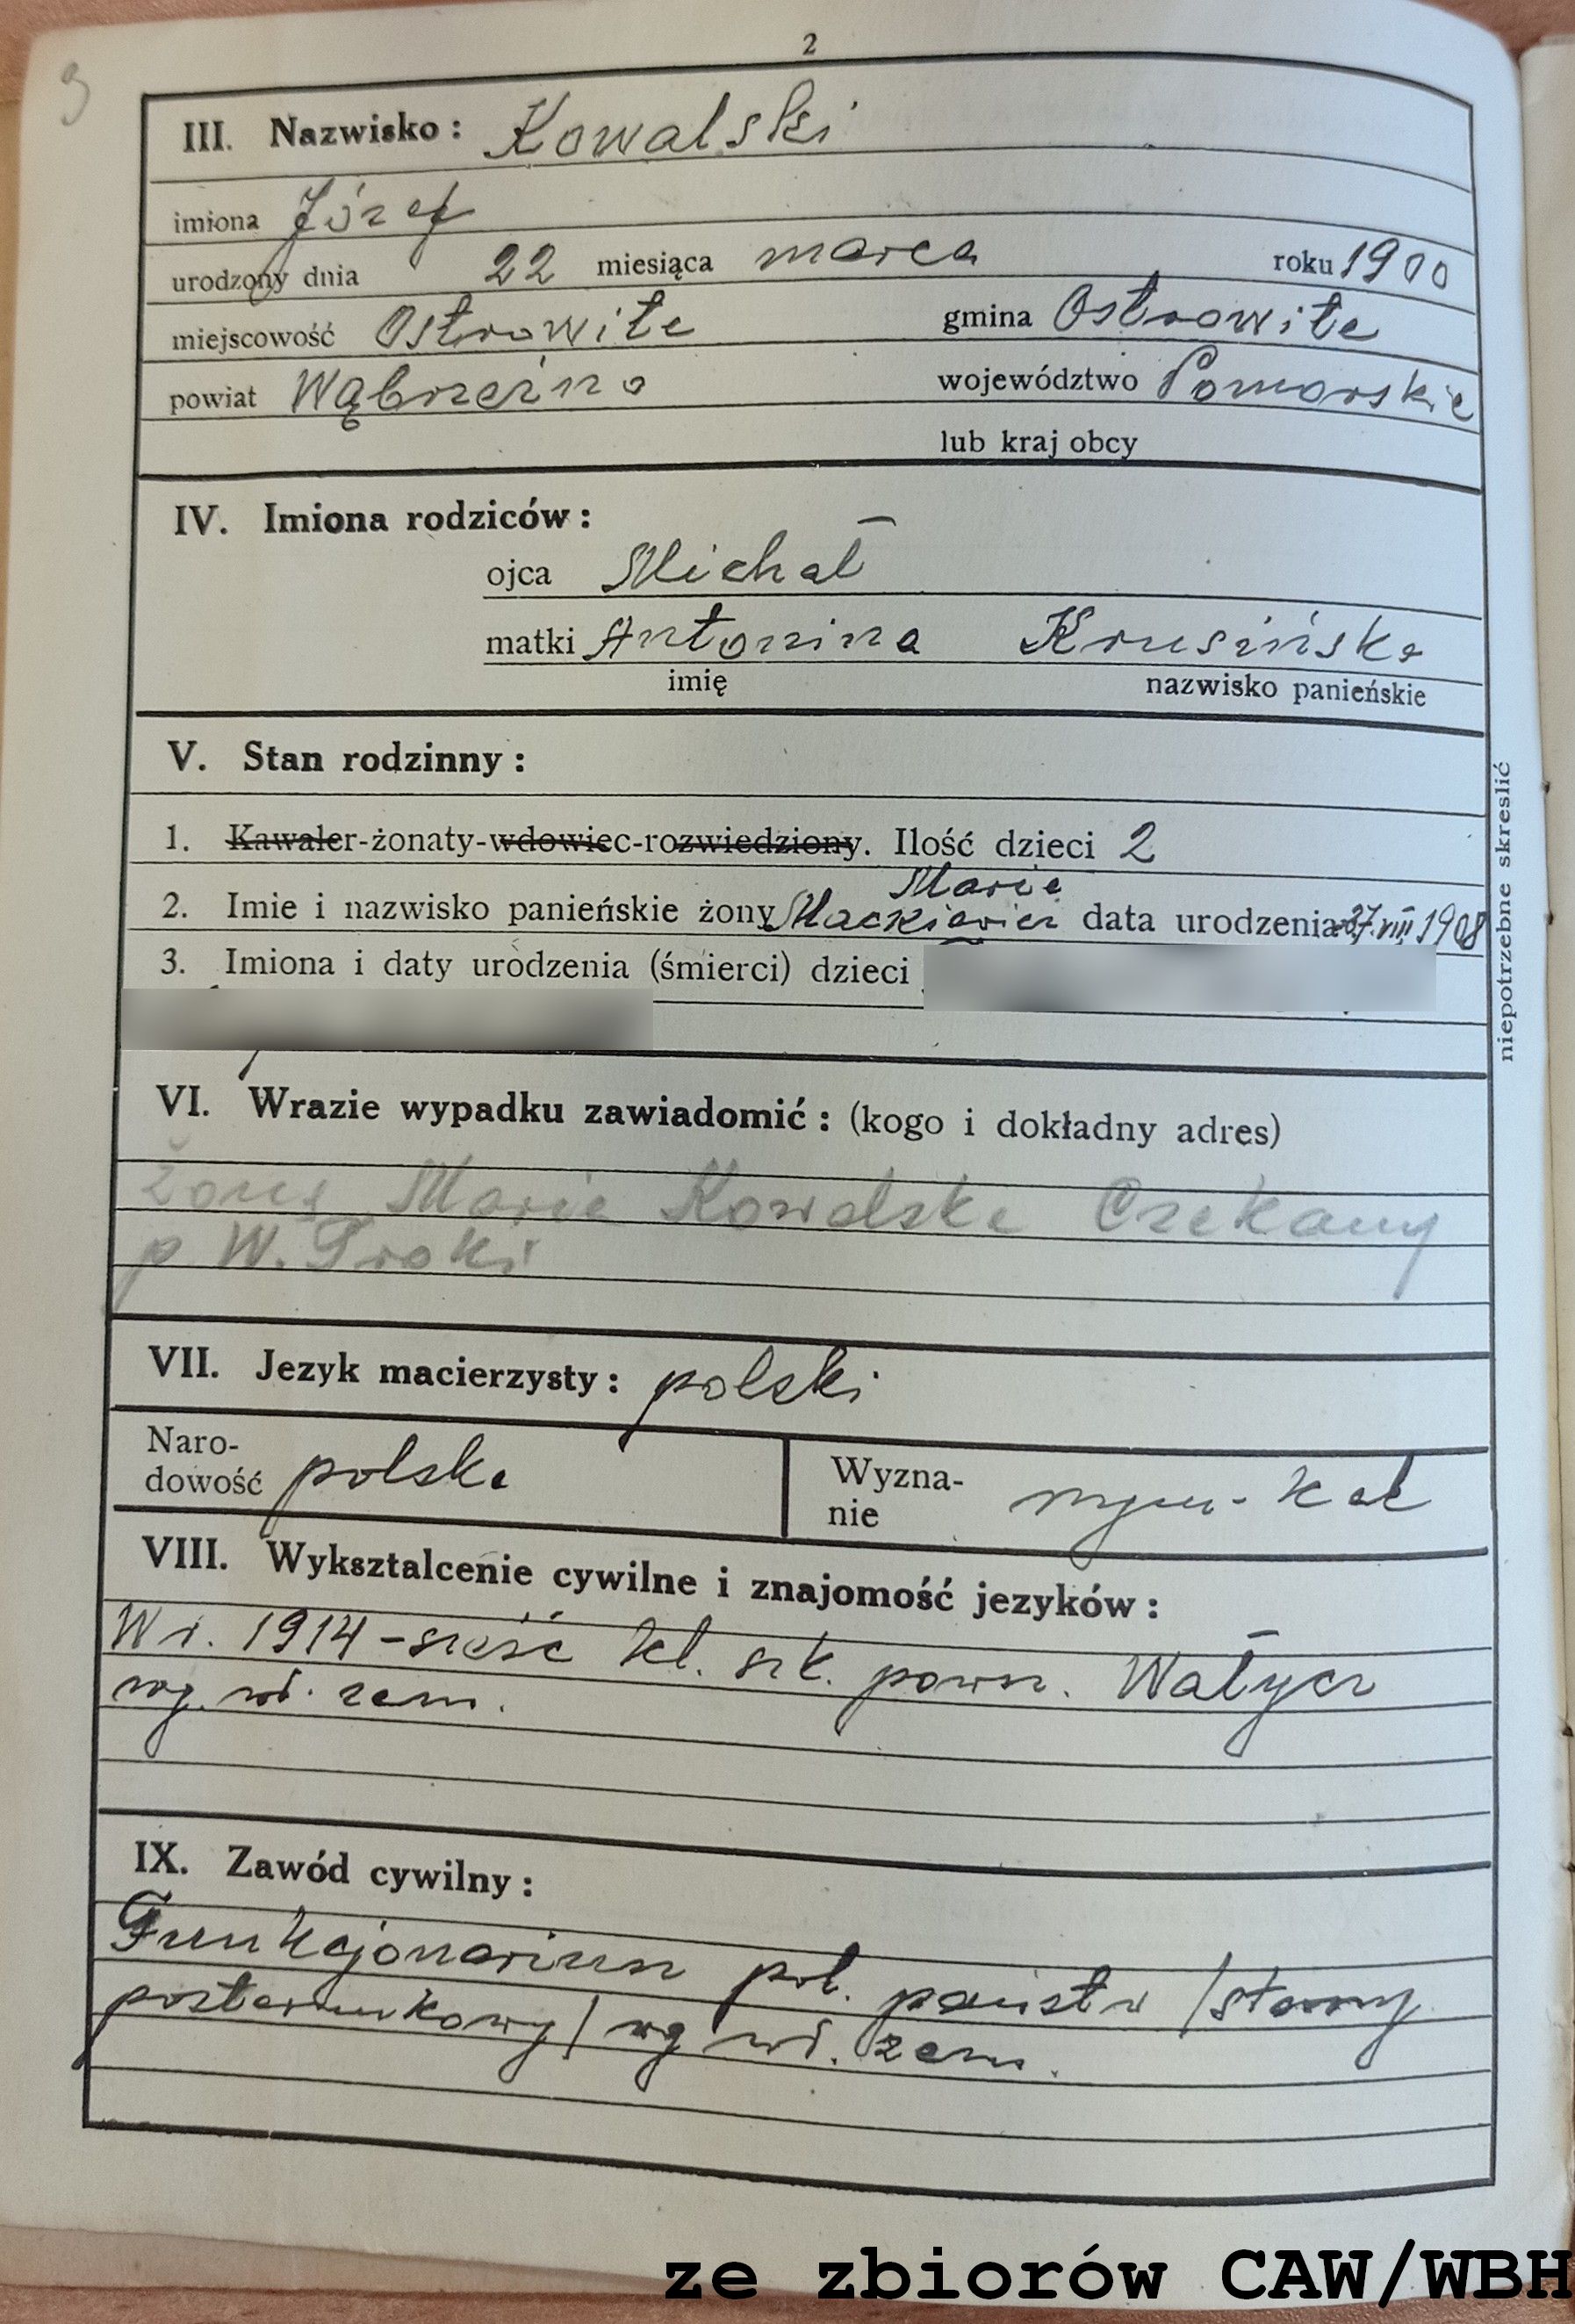 2
3
III. Nazwisko: Kowalski
imiona Józef
urodzony dnia 22 miesiąca marca roku 1900
miejscowość Ostrowite gmina Ostrowite
powiat Wąbrzeźno województwo Pomorskie
lub kraj obcy
IV. Imiona rodziców:
ojca Michał
matki Antonina Krusińska
imię nazwisko panieńskie
V. Stan rodzinny:
1. Kawaler-żonaty-wdowiec-rozwiedziony. Ilość dzieci 2
Maria
2. Imie i nazwisko panieńskie żony Mackiewicz data urodzenia 27.VIII 1908
3. Imiona i daty urodzenia (śmierci) dzieci
niepotrzebne skreslić
VI. Wrazie wypadku zawiadomić: (kogo i dokładny adres)
Żonę Maria Kowalska Czekany
p W. Troki
VII. Jezyk macierzysty: polski
Naro-
dowość polska
Wyzna-
nie rzym-kat
VIII. Wyksztalcenie cywilne i znajomość jezyków:
W r. 1914 - sześć kl. szk. powsz. Wałycz
wg. wł. zezn.
IX. Zawód cywilny:
Funkcjonariusz pol. państw /starszy
posterunkowy/ wg wł. zezn.
ze zbiorów CAW/WBH